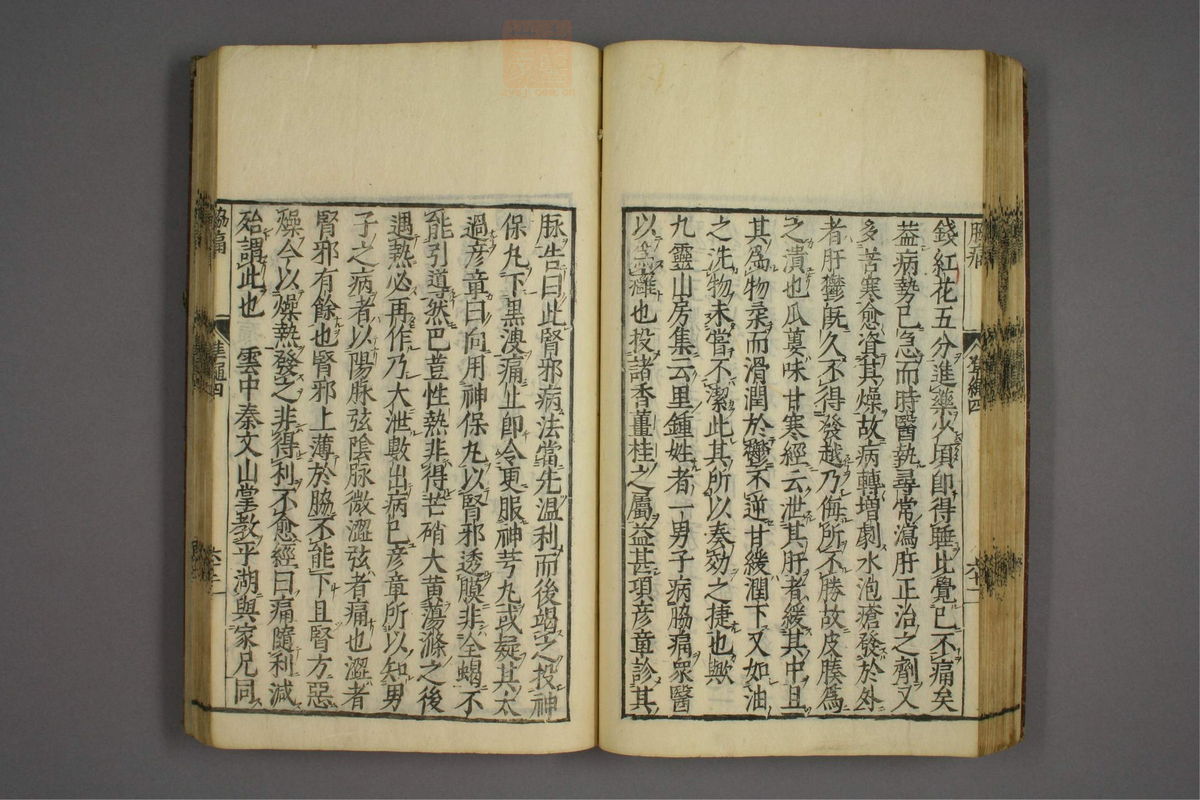 錢紅花五分進藥少頃即得睡比覺已不痛矣
葢病勢已急而時醫執尋常瀉肝正治之劑又
多苦寒愈資其燥故病轉增劇水泡瘡發於外
者肝鬱既久不得發越乃侮所不勝故皮腠爲
之潰也瓜蔞味甘寒經云泄其肝者緩其中且
其爲物柔而滑潤於鬱不逆甘緩潤下又如油
之洗物未嘗不潔此其所以奏効之捷也歟
九靈山房集云里鍾姓者一男子病脇痛衆醫
以爲癰也投諸香薑桂之屬益甚項彦章診其
脉告曰此腎邪病法當先温利而後竭之投神
保丸下黒溲痛止即令更服神芎丸或疑其太
過彦章曰向用神保丸以腎邪透膜非全蝎不
能引導然巴荳性熱非得芒硝大黄蕩滌之後
遇熱必再作乃大泄數出病已彦章所以知男
子之病者以陽脉弦陰脉微澀弦者痛也澀者
腎邪有餘也腎邪上薄於脇不能下且腎方惡
燥今以燥熱發之非得利不愈經曰痛隨利減
殆謂此也　雲中秦文山掌教平湖與家兄同
脇痛
六十二